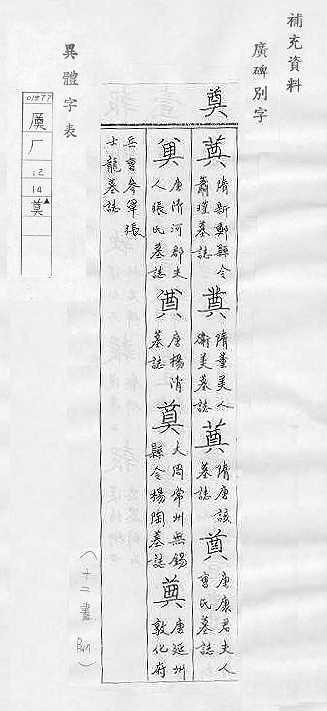 補充資料
廣碑別字
奠
隋新鄭縣令
蕭瑾墓誌
隋董美人
衛美墓誌
隋唐該
墓誌
唐康君夫人
曹氏墓誌
唐濟河郡夫
人張氏墓誌
唐楊清
墓誌
大周常州無錫
縣令楊陶墓誌
唐延州
敦化府
兵曹參軍張
士龍墓誌
(十二畫 )
異體字表
01877
厂
12
14